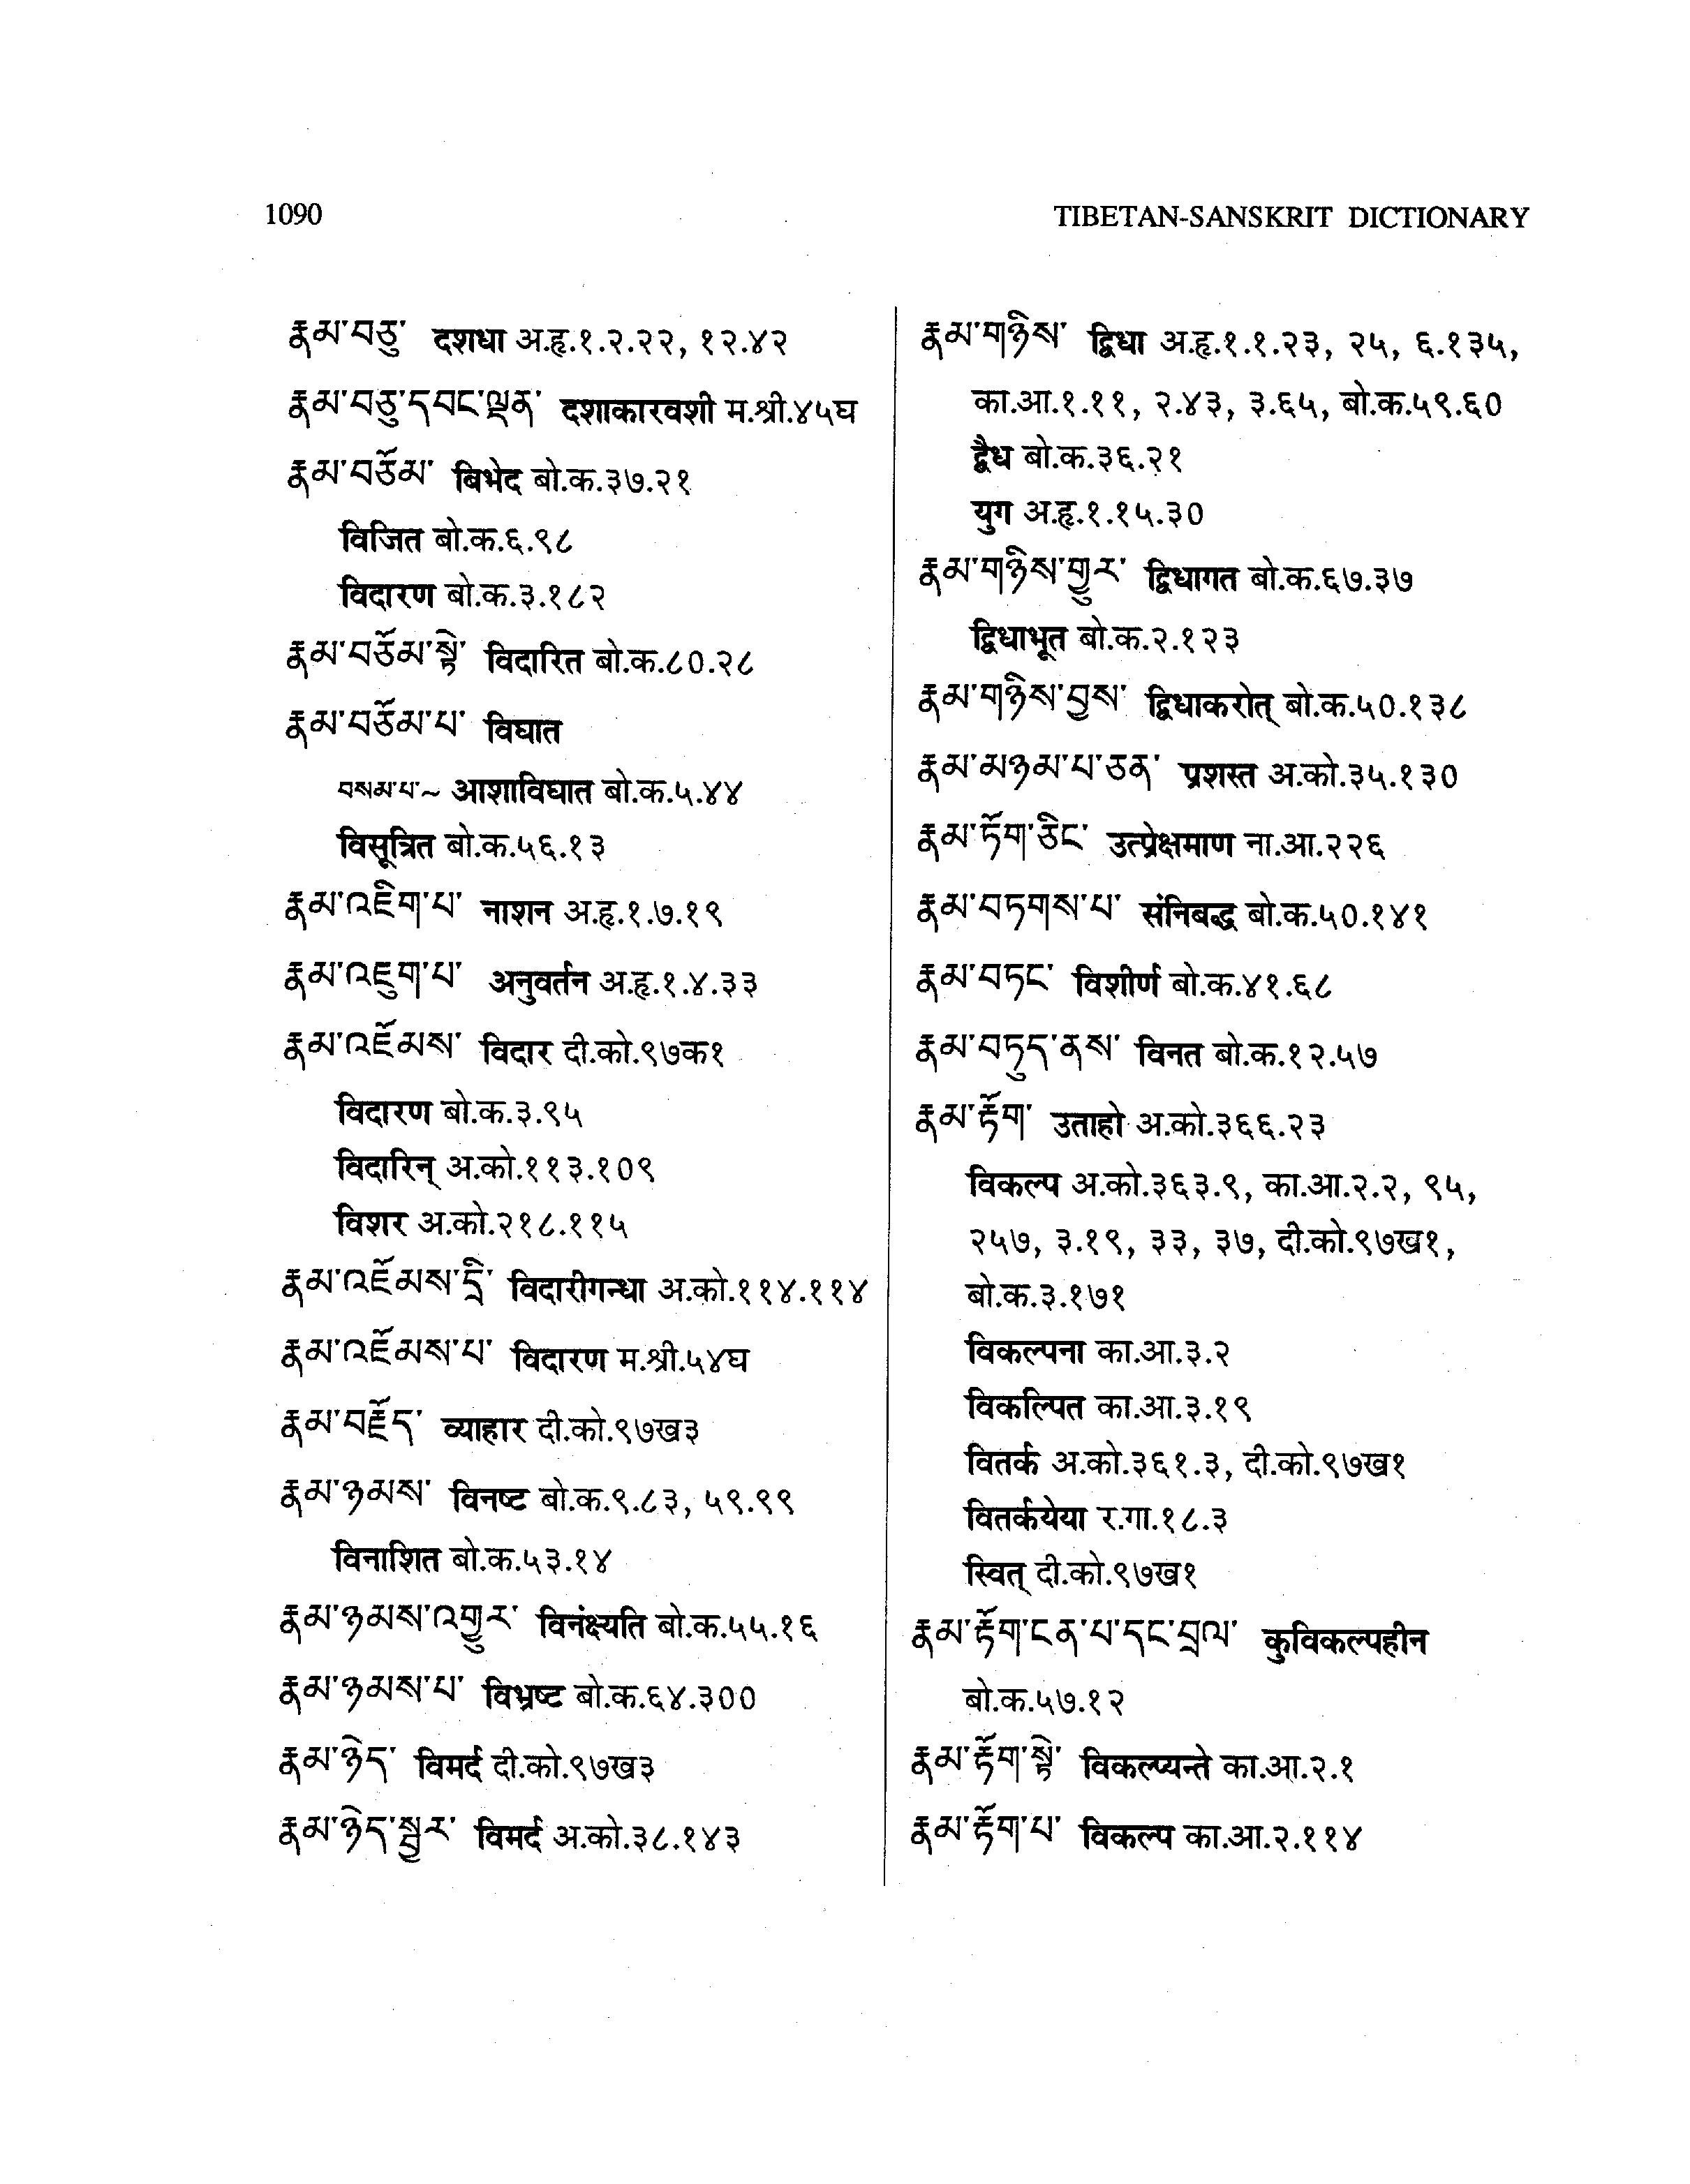 1090
TIBETAN-SANSKRIT DICTIONARY
རྣམ་བཅུ་ दशधा अ.हृ.१.२.२२, १२.४२
རྣམ་བཅུ་དབང་ལྡན་ दशाकारवशी म.श्री.४५घ
རྣམ་བཅོམ་ विभेद बो.क.३७.२१
विजित बो.क.६.९८
विदारण बो.क.३.१८२
རྣམ་བཅོམ་སྟེ་ विदारित बो.क.८०.२८
རྣམ་བཅོམ་པ་ विघात
བསམ་པ་~ आशाविघात बो.क.५.४४
विसूत्रित बो.क.५६.१३
རྣམ་འཇིག་པ་ नाशन अ.हृ.१.७.१९
རྣམ་འཇུག་པ་ अनुवर्तन अ.हृ.१.४.३३
རྣམ་འཇོམས་ विदार दी.को.९७क१
विदारण बो.क.३.९५
विदारिन् अ.को.११३.१०९
विशर अ.को.२१८.११५
རྣམ་འཇོམས་དྲི་ विदारीगन्धा अ.को.११४.११४
རྣམ་འཇོམས་པ་ विदारण म.श्री.५४घ
རྣམ་བརྗོད་ व्याहार दी.को.९७ख३
རྣམ་ཉམས་ विनष्ट बो.क.९.८३, ५९.९९
विनाशित बो.क.५३.१४
རྣམ་ཉམས་འགྱུར་ विनंक्ष्यति बो.क.५५.१६
རྣམ་ཉམས་པ་ विभ्रष्ट बो.क.६४.३००
རྣམ་ཉེད་ विमर्द दी.को.९७ख३
རྣམ་ཉེད་སྦྱར་ विमर्द अ.को.३८.१४३
རྣམ་གཉིས་ द्विधा अ.हृ.१.१.२३, २५, ६.१३५,
का.आ.१.११, २.४३, ३.६५, बो.क.५९.६०
द्वैध बो.क.३६.२१
युग अ.हृ.१.१५.३०
རྣམ་གཉིས་གྱུར་ द्विधागत बो.क.६७.३७
द्विधाभूत बो.क.२.१२३
རྣམ་གཉིས་བྱས་ द्विधाकरोत् बो.क.५०.१३८
རྣམ་མཉམ་པ་ཅན་ प्रशस्त अ.को.३५.१३०
རྣམ་ཏོག་ཅིང་ उत्प्रेक्षमाण ना.आ.२२६
རྣམ་བཏགས་པ་ संनिबद्ध बो.क.५०.१४१
རྣམ་བཏང་ विशीर्ण बो.क.४१.६८
རྣམ་བཏུད་ནས་ विनत बो.क.१२.५७
རྣམ་རྟོག་ उताहो अ.को.३६६.२३
विकल्प अ.को.३६३.९, का.आ.२.२, ९५,
२५७, ३.१९, ३३, ३७, दी.को.९७ख१,
बो.क.३.१७१
विकल्पना का.आ.३.२
विकल्पित का.आ.३.१९
वितर्क अ.को.३६१.३, दी.को.९७ख१
वितर्कयेया र.गा.१८.३
स्वित् दी.को.९७ख१
རྣམ་རྟོག་ངན་པ་དང་བྲལ་ कुविकल्पहीन
बो.क.५७.१२
རྣམ་རྟོག་སྟེ་ विकल्प्यन्ते का.आ.२.१
རྣམ་རྟོག་པ་ विकल्प का.आ.२.११४